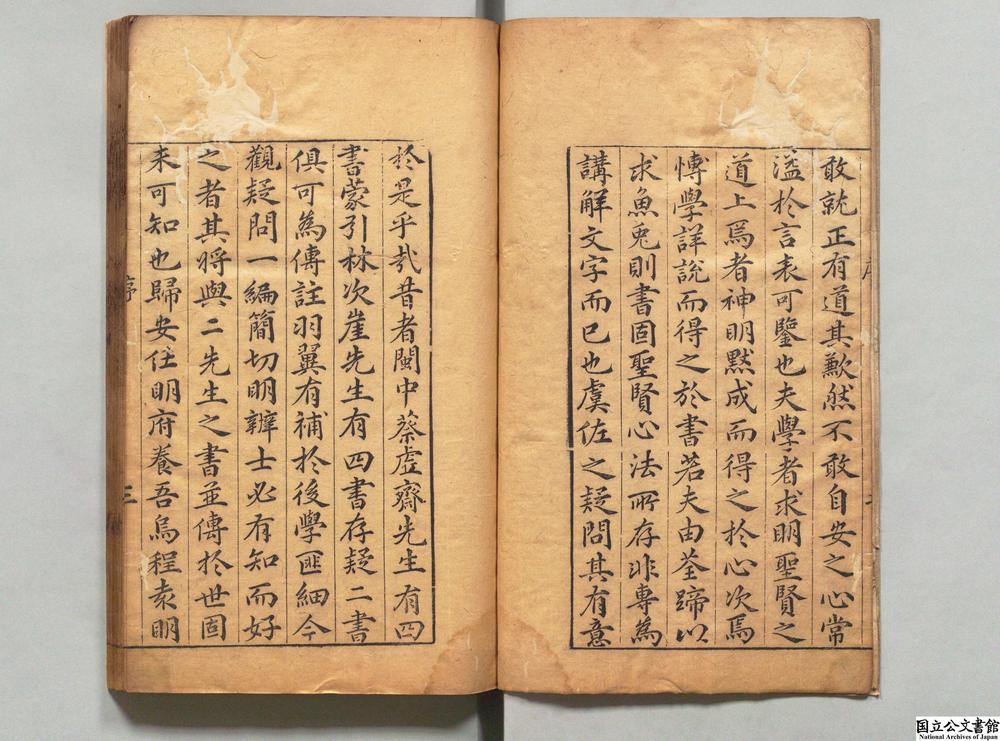 敢就正有道其歉然不敢自安之心常
溢於言表可鑒也夫學者求明聖賢之
道上焉者神明默成而得之於心次焉
愽學詳說而得之於書若夫由荃蹄以
求魚兎則書固聖賢心法所存非專為
講解文字而已也虞佐之疑問其有意
於是乎㢤昔者閩中蔡虛齋先生有四
書蒙引林次崖先生有四書存疑二書
俱可為傳註羽翼有補於後學匪細今
觀疑問一編簡切明辨士必有知而好
之者其將與二先生之書並傳於世固
来可知也歸安任明府養吾烏程袁明
序
三
国立公文書館
National Archives of Japan